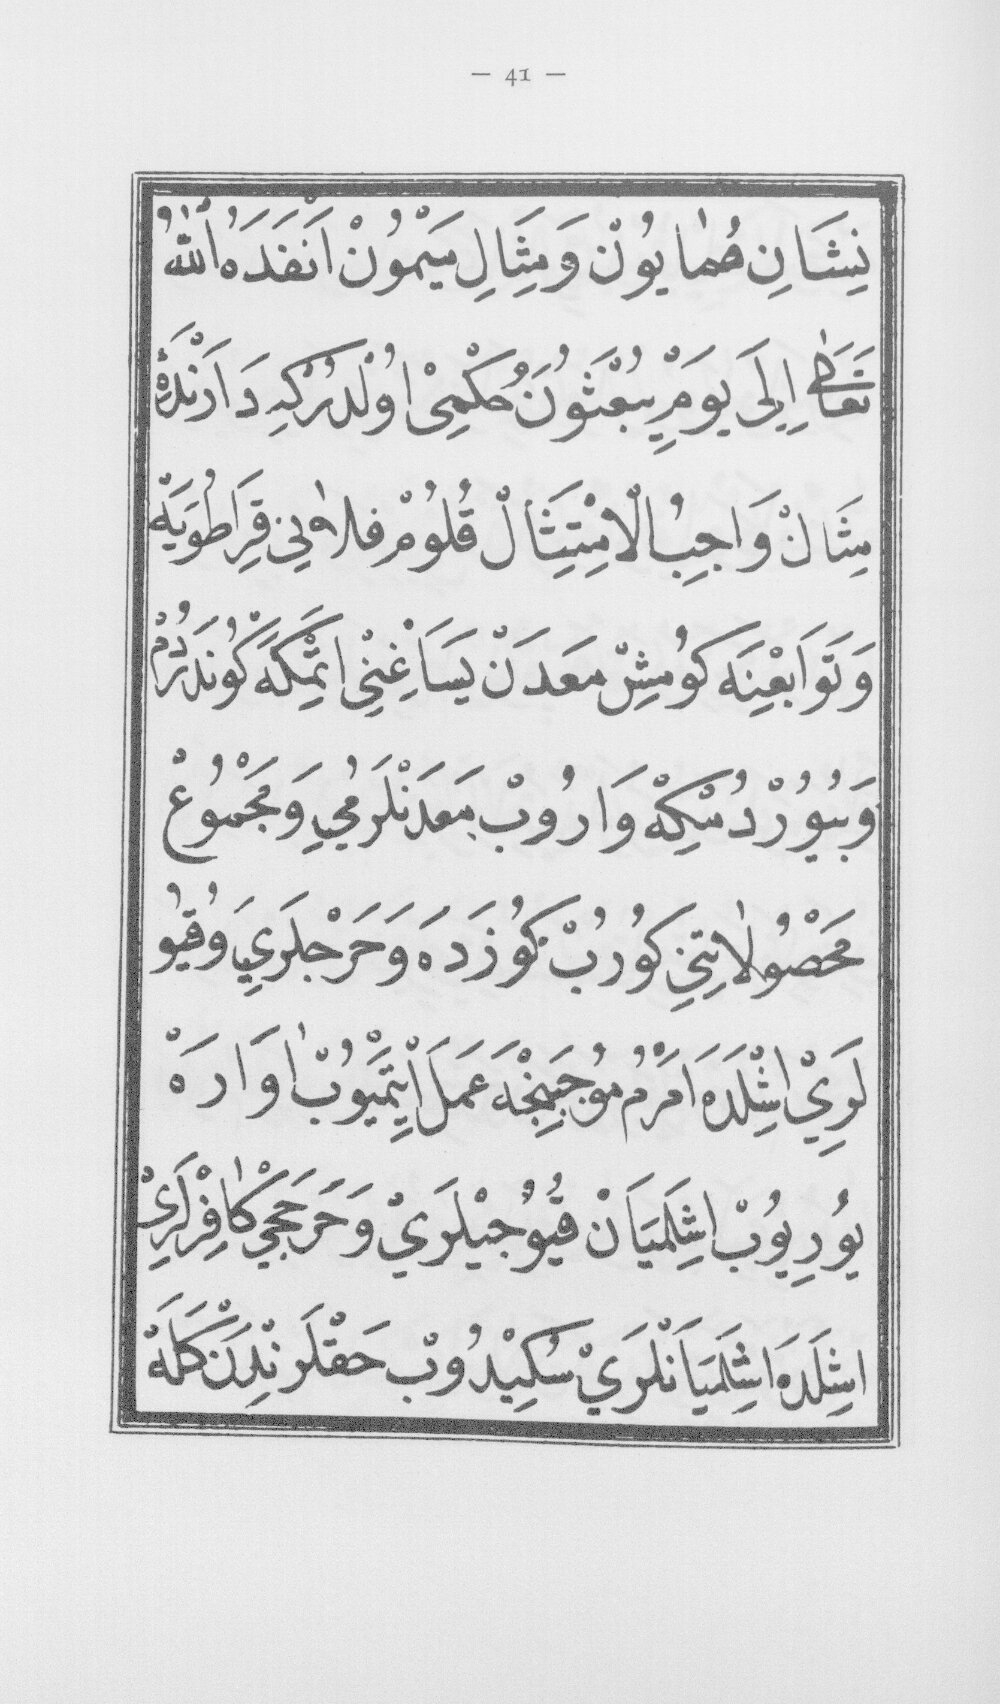 — 41 —
نِشَانِ هُمٰايُونْ وَمِثَالِ مَيْمُونْ اَنْفَذَهُ اللّٰهُ
تَعَالٰى اِلَى يَوْمِ يُبْعَثُونَ حُكْمِى اوُلْدُرْكِهِ دَارَنْدَهٔ
مِثَالْ وَاجِبُ الْاِمْتِثَالْ قُلُومْ فلانِى قِرَاطُوَيَه
وَتَوَابِعْنِه كُومُشْ مَعَدَنْ يَسَاغِنِى اتْمَكَه كُونْدَرْدُمْ
وَبُيُورْدُمْكِه وَارُوبْ مَعَدَنْلَرُمِي وَمَجْمُوعْ
مَحْصُولٰاتِنِي كُورُبْ كُوزَدَه وَحَرْجِلَرِي وَقُيُو
لَرِيْ اِشْلَدَه اَمْرُمْ مُوجَبِنْجَه عَمَلْ ايتْمَيُوبْ اٰوَارَه
يُورِيُوبْ اِشْلَمَيَانْ قُيُوجِيلَرِيْ وَحَرْجَجِي كٰافِرْلَرِيْ
اِشْلَدَه اِشْلَمَيَانْلَرِيْ سَكِيْدُوبْ حَقْلَرِنْدَنْ كَلَه